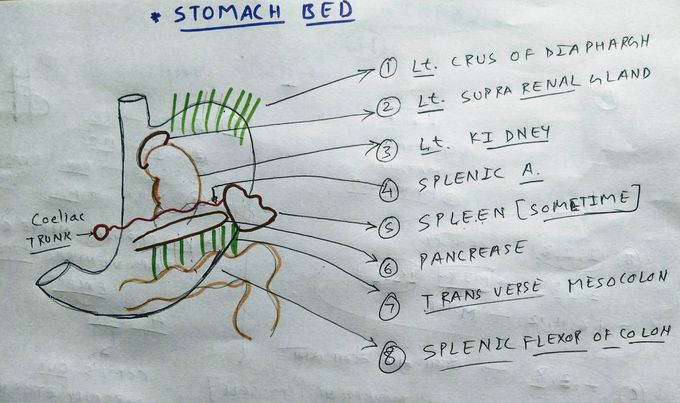 * STOMACH BED
① Lt. CRUS OF DIAPHARGH
② Lt. SUPRA RENAL GLAND
③ Lt. KIDNEY
④ SPLENIC A.
Coeliac
TRUNK
⑤ SPLEEN [SOMETIME]
⑥ PANCREASE
⑦ TRANS VERSE MESOCOLON
⑧ SPLENIC FLEXOR OF COLON